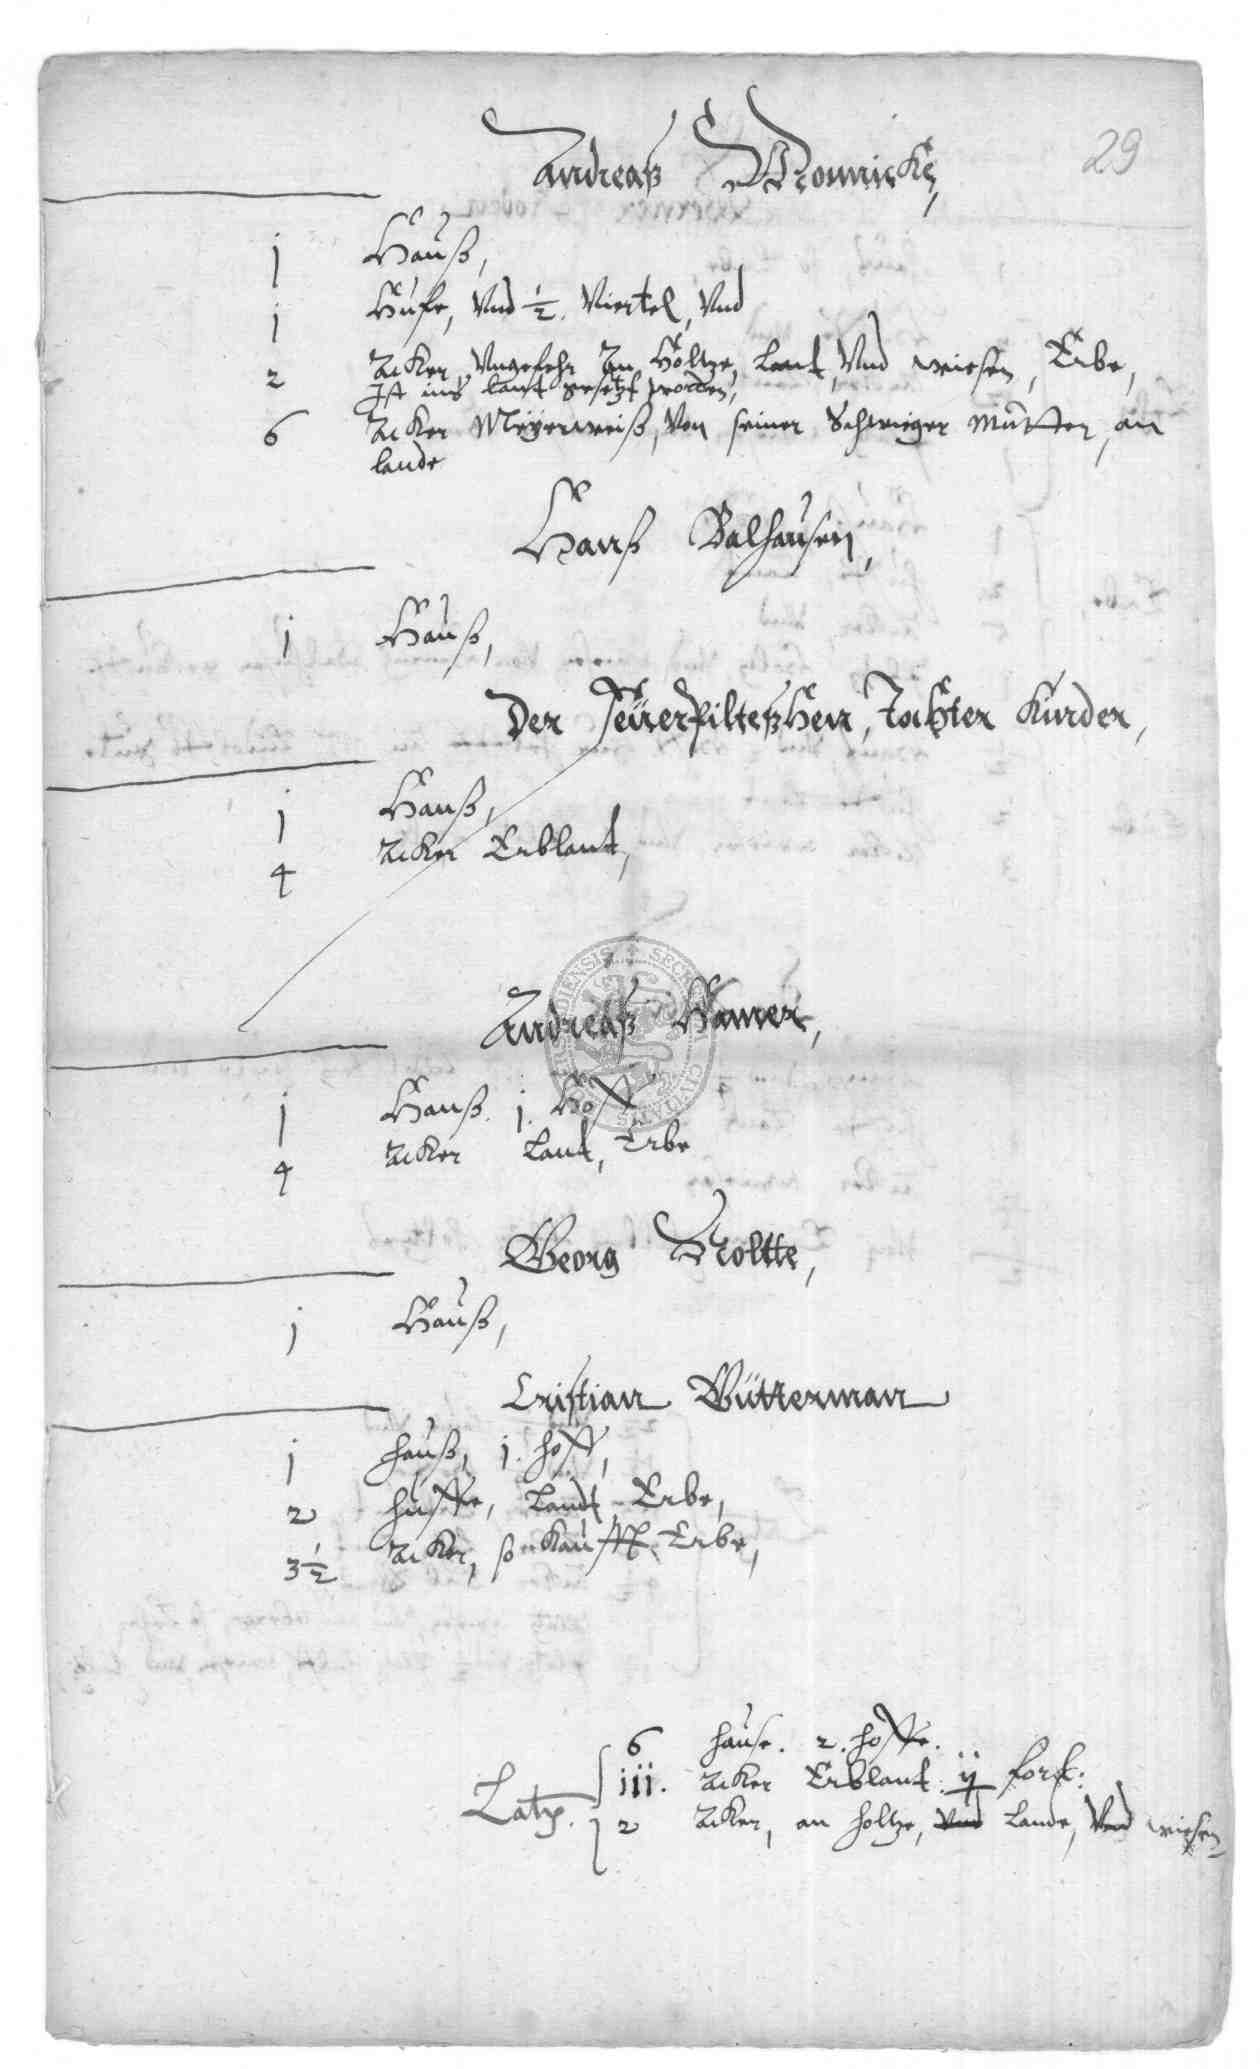 29
Andreaß
j Hauß,
j Hufe, Vnd ½. Viertel, Vnd
2 Acker Vngefehr An Höltze, Lant, Vnd wiesen, Erbe,
Ist ins lant gesetzt worden,
6 Acker Meÿerweiß, Von seiner Schwieger Mutter, an
lande
Hanß Balhausen,
j Hauß,
Der Tochter Kinder,
j Hauß,
4 Acker Erblant,
Andreaß Hamer,
j Hauß. j. Hoff
4 Acker Lant, Erbe
Georg Noltte,
j Hauß,
Cristian Gütterman
j hauß, j. hoff,
2 huffe, Landt, Erbe,
3½ Acker, so Kaufft, Erbe,
6 hause. 2. hoffe.
Acker Erblant.
2 Acker, an holtze, Vnd Lande, Vnd wiesen